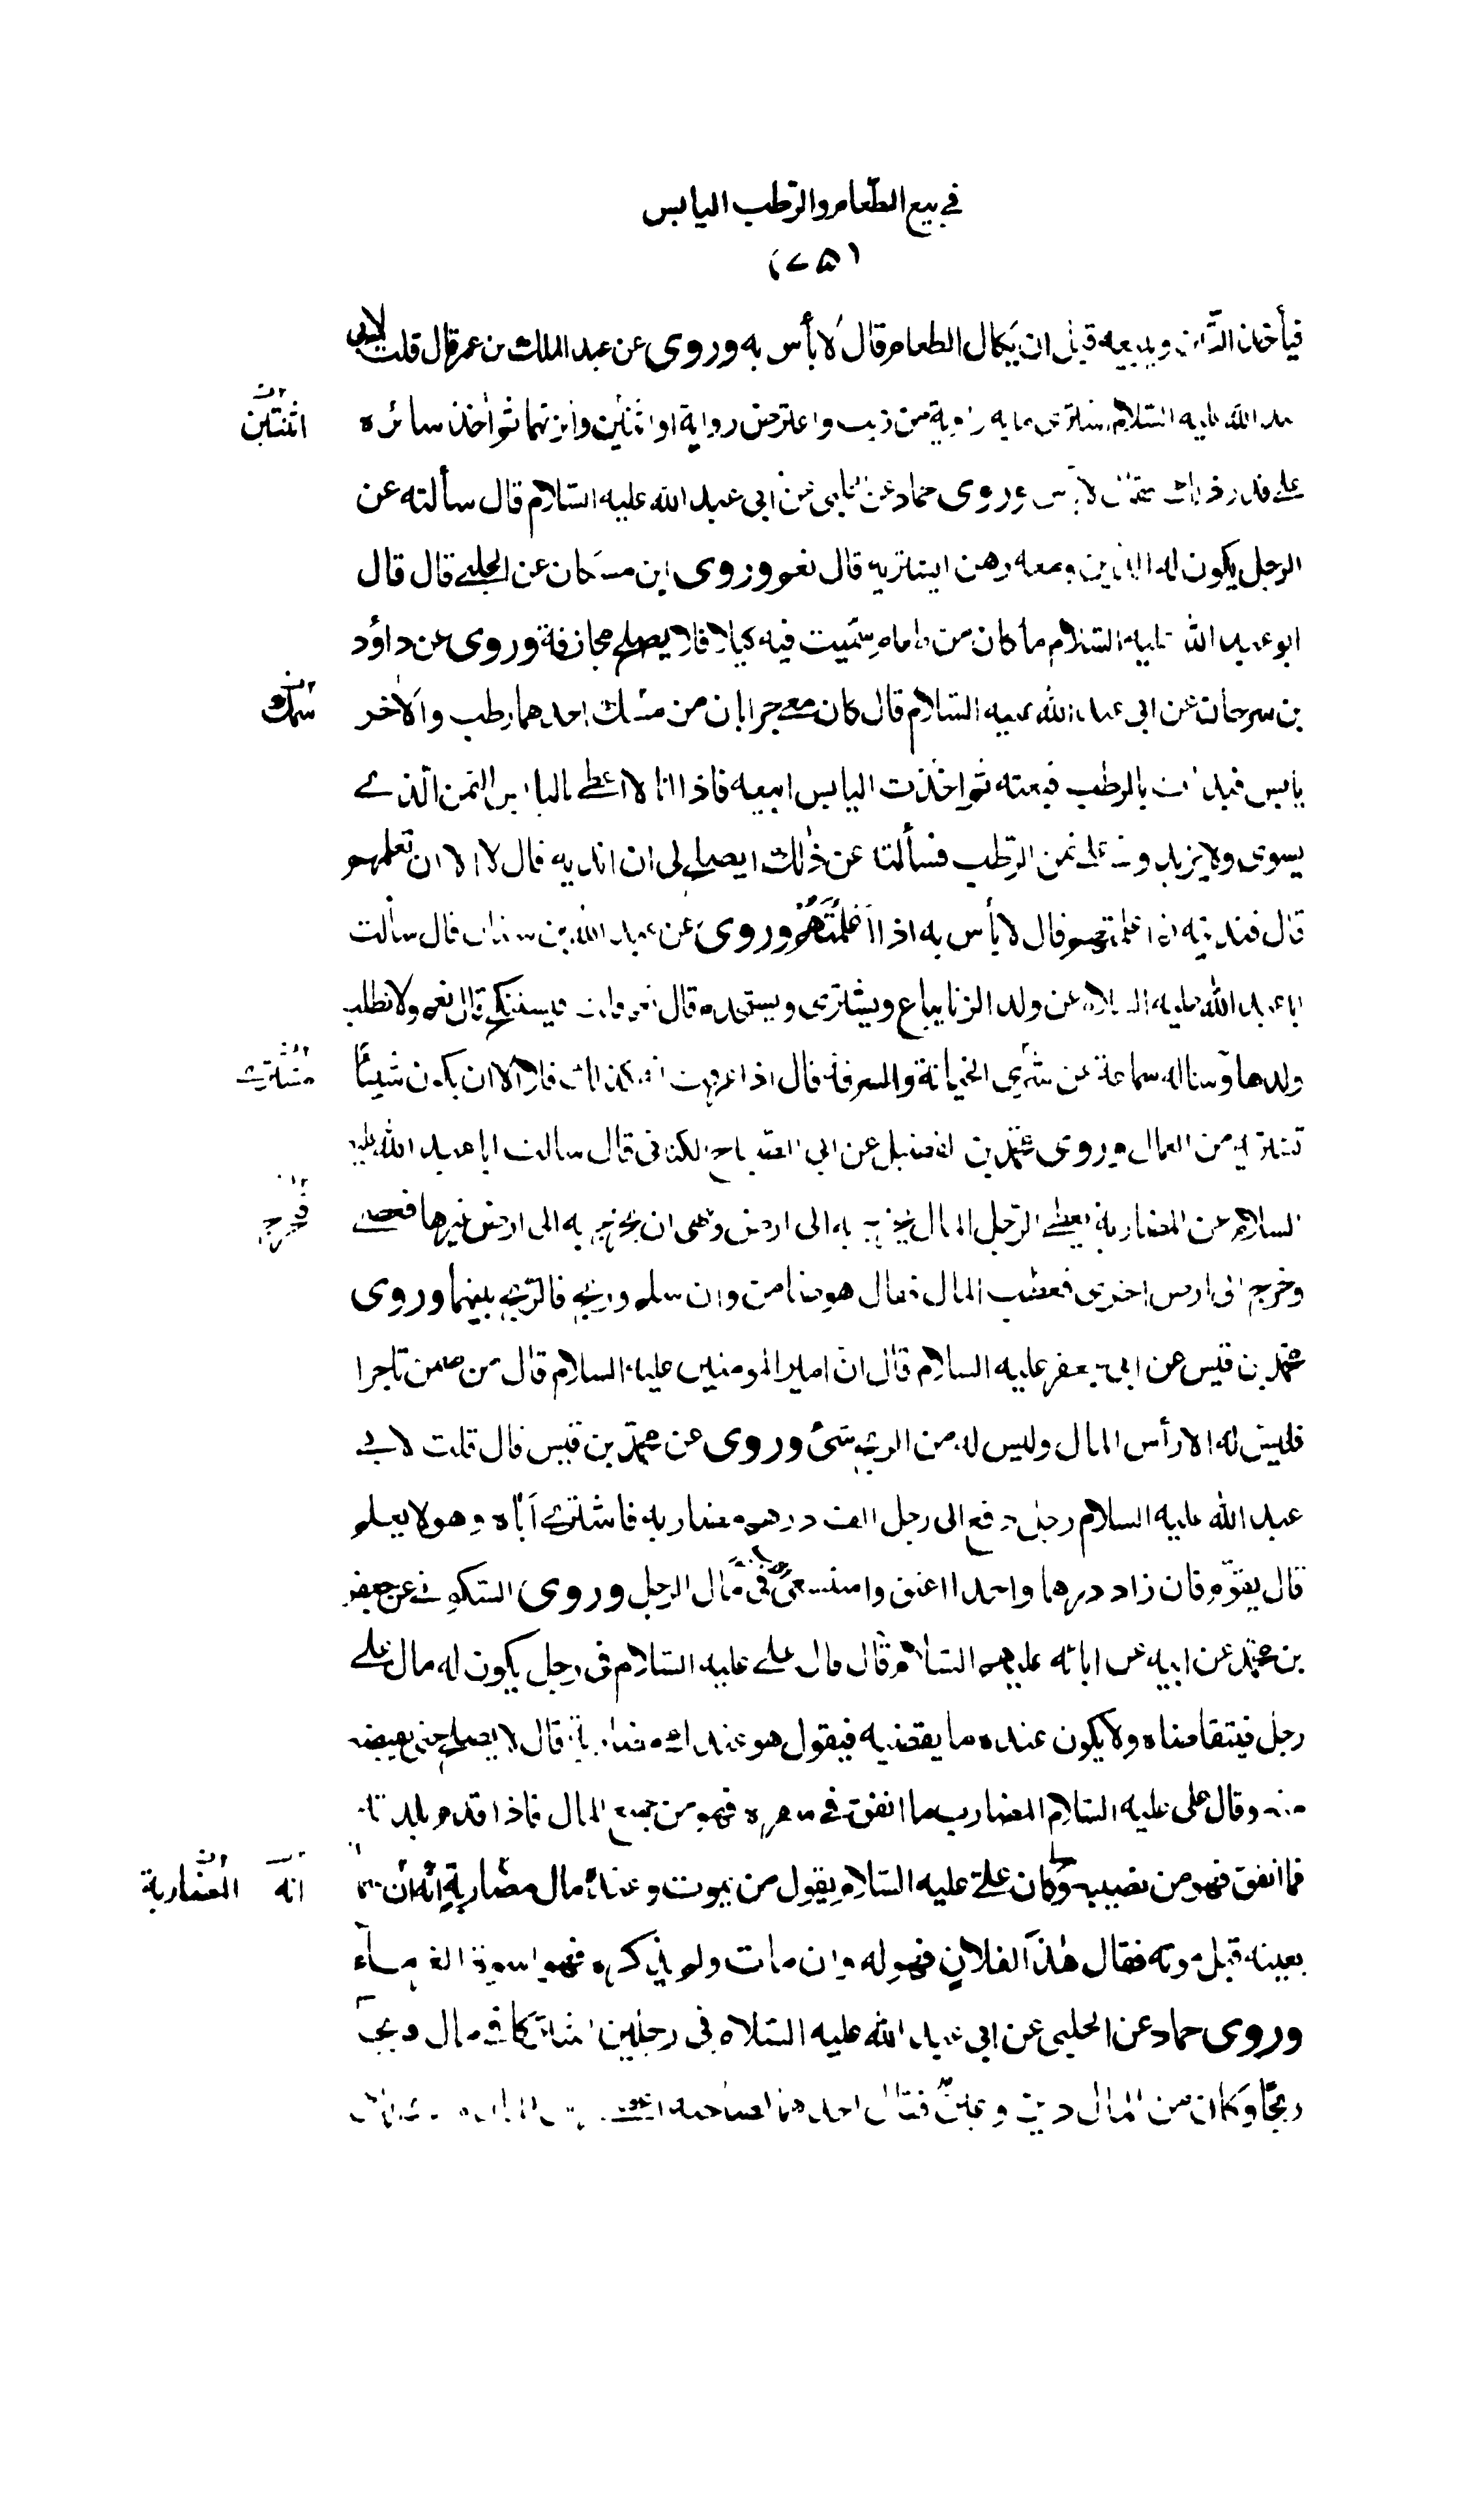 في بيع الطّعام والرّطب اليابس
فيأخذ ان ويبيعه قبل ان يكال الطعام قال لا بأس به وروى عن عبد الملك بن عمر قال قلت لابى
عبد الله عليه السّلام اشترى مائة راوية من زيت واعترض رواية او اثنين واتزنهما ثم اخذ سائره
اثنتين
على قدر ذلك لا بأس وروى حماد عن عن ابى عبد الله عليه السّلام قال سألته عن
الرجل يكون له الدين ومعه رهن ايشتريه قال نعم وروى ابن مسكان عن الحلبي قال قال
ابو عبد الله عليه السّلام ما كان من طعام سمّيت فيه كيلا فلا يصلح مجازفة وروى عن داؤد
بن سرحان عن ابى عبد الله عليه السّلام قال كان معى جرابان من مسك احدهما رطب والآخر
سمك
يابس فبدأت بالرطب فبعته ثم اخذت اليابس ابيعه فاذا انا لا اعطى باليابس الثمن الّذى
يسوى ولا يزيدون على ثمن الرّطب فسألته عن ذلك ايصلح لى ان انديه قال لا الا ان تعلمهم
قال فنديته ثم اعلمتهم قال لا بأس به اذا اعلمتهم وروى عن عبد الله بن سنان قال سألت
ابا عبد الله عليه السلام عن ولد الزنا يباع ويشترى ويستخدم قال نعم قلت فيستنكح قال نعم ولا تطلب
ولدها وسأله سماعة عن شرى الخيانة والسرقة قال اذا عرفت انه كذلك فلا الا ان يكون شيئا
تشتريه من العمال وروى محمّد بن الفضيل عن ابى الصباح الكنانى قال سالت ابا عبد الله عليه
السلام عن المضاربة يعطى الرّجل المال يخرج به الى ارض ونهى ان يخرج به الى ارض غيرها فعصى
وخرج الى ارض اخرى فعطب المال فقال هو ضامن وان سلم وربح فالربح بينهما وروى
محمّد بن قيس عن ابى جعفر عليه السلام قال ان امير المومنين عليه السلام قال من ضمن تاجرا
فليس له الا رأس المال وليس له من الربح شئ وروى عن محمّد بن قيس قال قلت لابى
عبد الله عليه السلام رجل دفع الى رجل الف درهم مضاربه فاشترى اباه وهو لا يعلم
قال يقوّم فان زاد درهما واحدا اعتق واستسعى فى مال الرجل وروى السّكونى عن جعفر
بن محمّد عن ابيه عن ابائه عليهم السّلام قال قال على عليه السّلام فى رجل يكون له مال على
رجل فيتقاضاه ولا يكون عنده ما يقضيه فيقول هو عندك مضاربة قال لا يصلح حتى يقبضه
منه وقال على عليه السّلام المضارب ما انفق فى سفره فهو من جميع المال فاذا قدم بلدته
فما انفق فهو من نصيبه وكان علىّ عليه السّلام يقول من يموت وعنده مال مضاربة انه ان
انه المضاربة
بعينه قبل موته فقال هذا لفلان فهو له وان مات ولم يذكره فهو اسوة الغرماء
وروى حماد عن الحلبى عن ابى عبد الله عليه السّلام فى رجلين اشتركا فى مال
ربحا وكان من المال دين وعين فقال احدهما لصاحبه